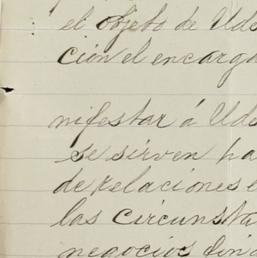 el objeto de Uds
ción el encarga
nifestar á Uds
se sirven ha
de relaciones e
las circunsta
negocios